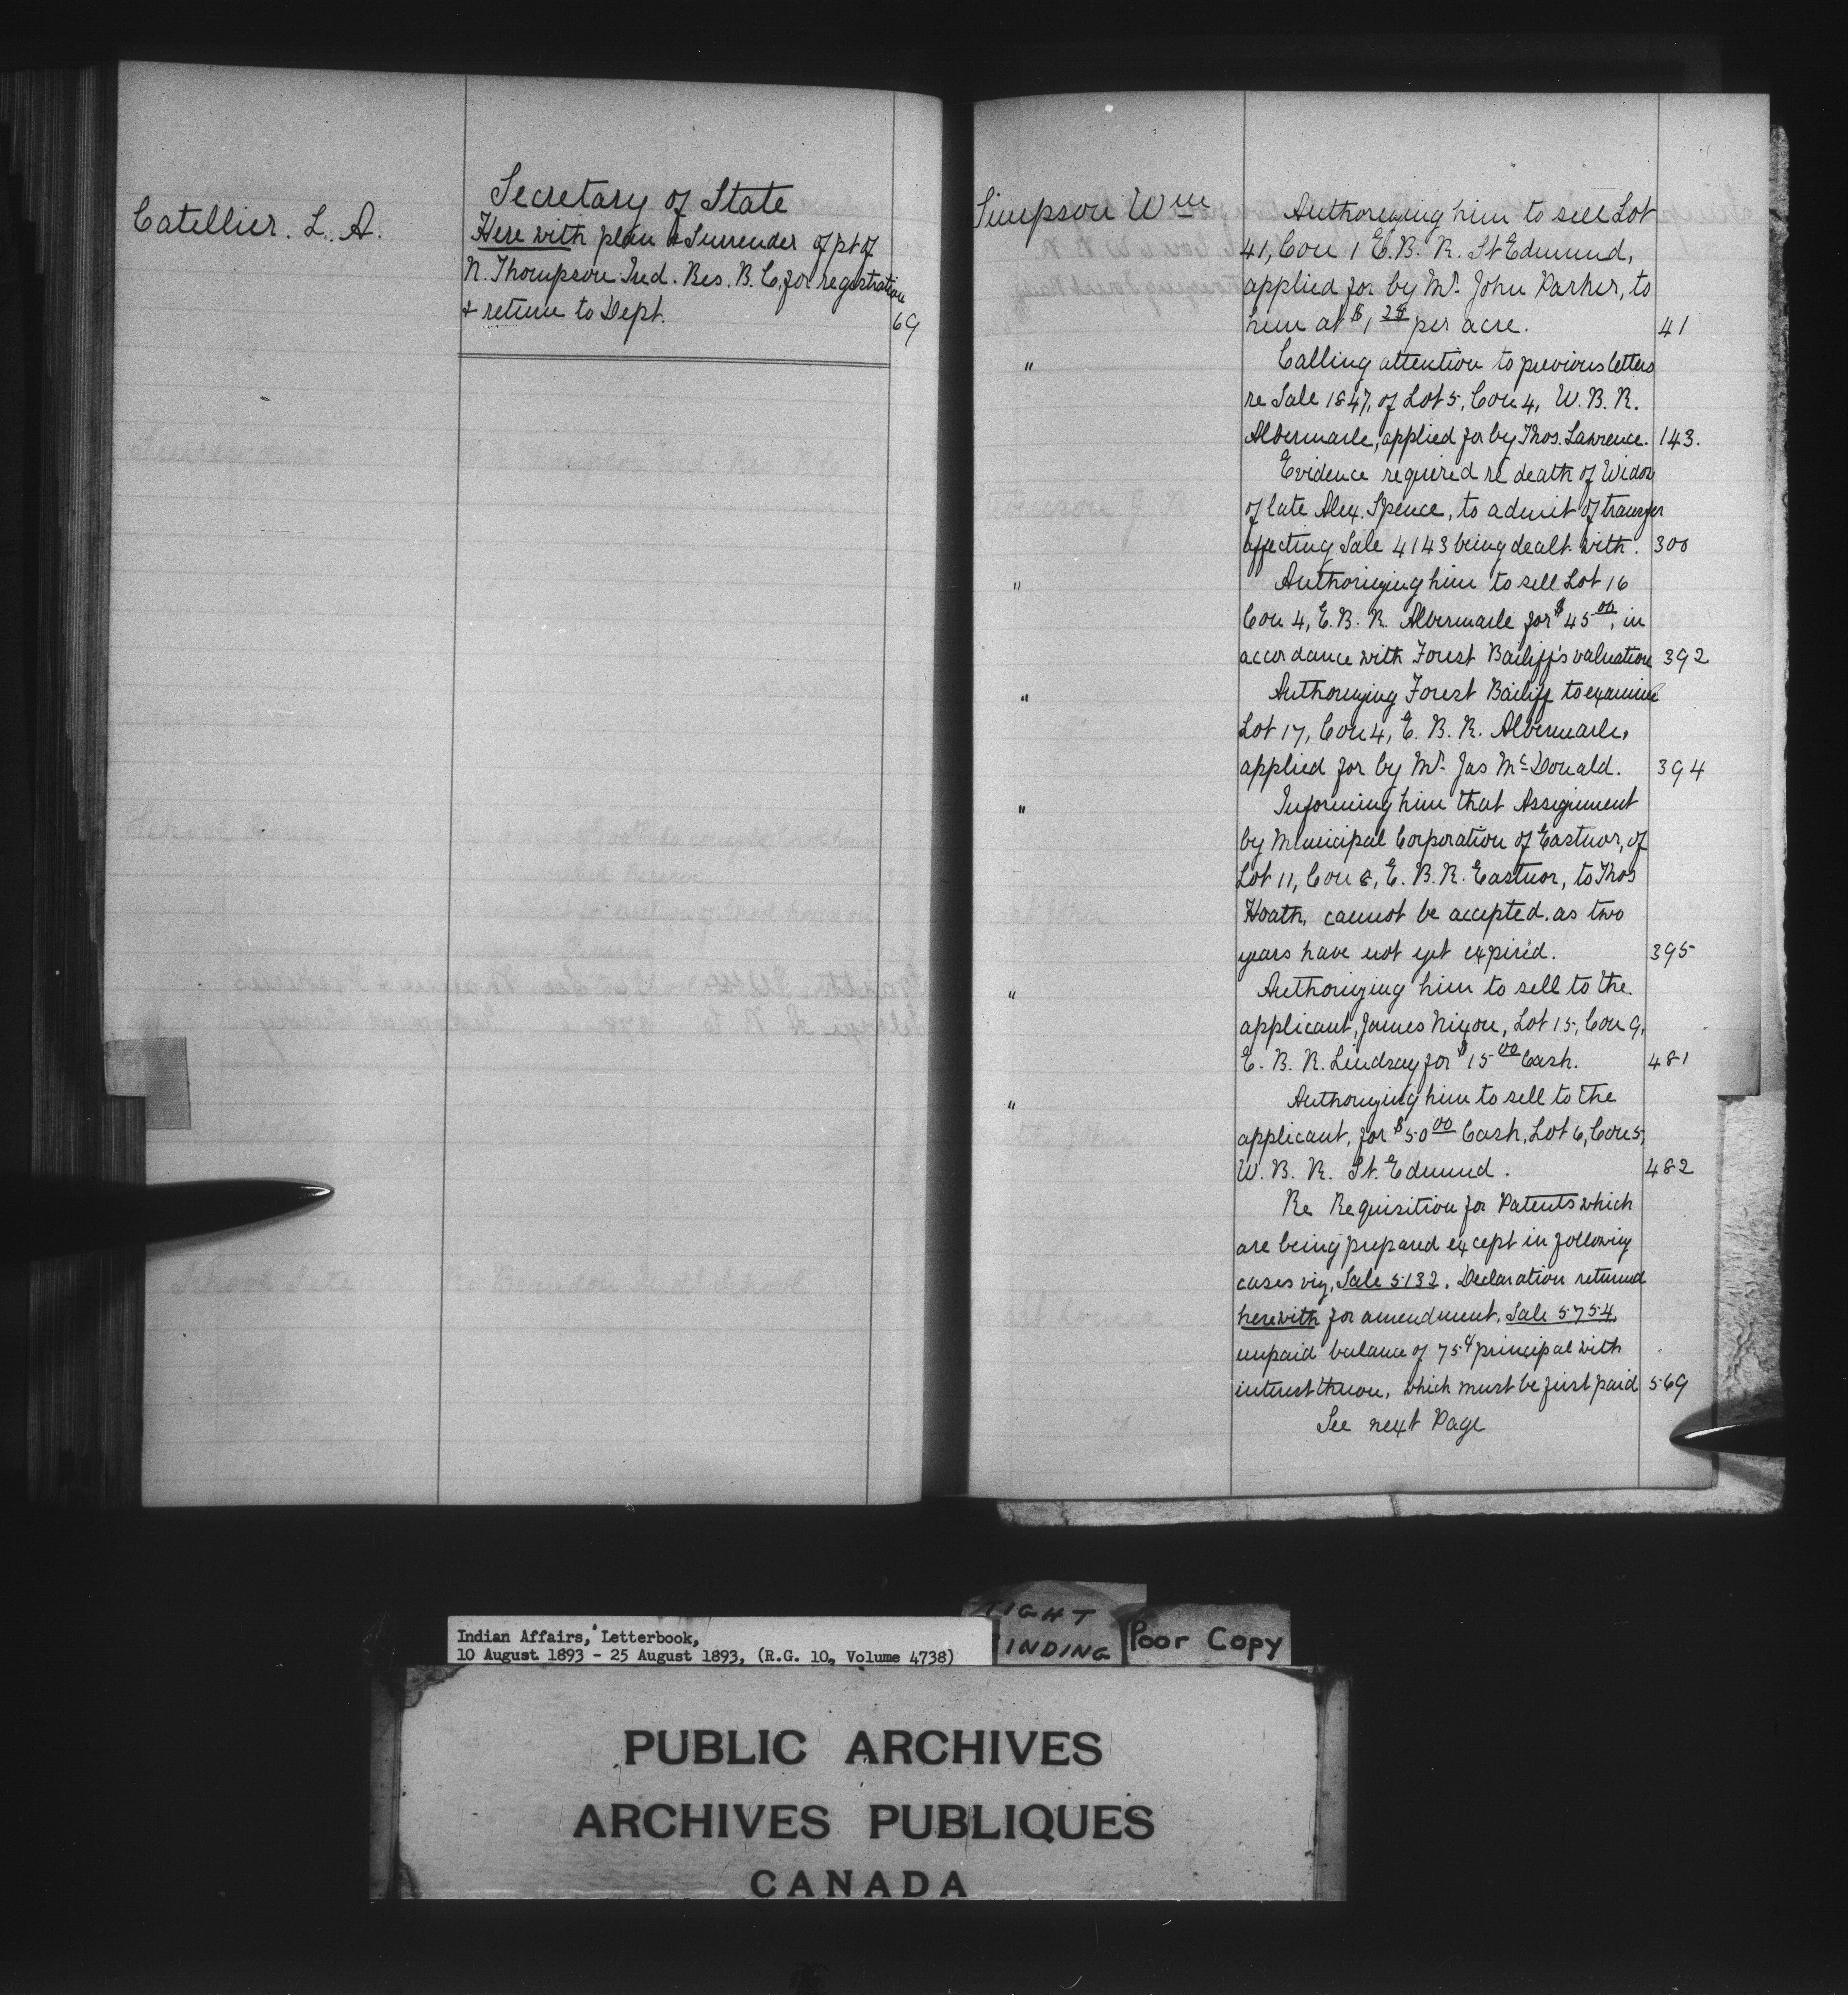 Secretary of State
Catellier. L. A.
Here with plan & Surrender of pt of
N. Thompson Ind. Res. B.C. for registration
& return to Dept. 69
Simpson Wm
Authorizing him to sell Lot
41, Con 1 E.B.R. St Edmund,
applied for by Mr. John Parker, to
him at $1 25 per acre. 41
" Calling attention to previous letters
re Sale 1847, of Lot 5, Con 4, W.B.R.
Albermarle, applied for by Thos. Lawrence. 143.
Evidence required re death of Widow
of late Alex. Spence, to admit of transfer
affecting Sale 4143 being dealt with. 300
" Authorizing him to sell Lot 16
Con 4, E.B.R. Albermarle for $45 00, in
accordance with Forest Bailiff's valuation 392
" Authorizing Forest Bailiff to examine
Lot 17, Con 4, E.B.R. Albermarle,
applied for by Mr. Jas McDonald. 394
" Informing him that Assignment
by Municipal Corporation of Eastnor, of
Lot 11, Con 8, E.B.R. Eastnor, to Thos
Hoath, cannot be accepted. as two
years have not yet expired. 395
" Authorizing him to sell to the
applicant, James Nixon, Lot 15, Con 9,
E.B.R. Lindsay for $15 00 Cash. 481
" Authorizing him to sell to the
applicant, for $50 00 Cash, Lot 6, Con 5,
W.B.R. St. Edmund. 482
Re Requisition for Patents which
are being prepared except in following
cases viz, Sale 5132. Declaration returned
herewith for amendment. Sale 5754,
unpaid balance of 75¢ principal with
interest thereon, which must be first paid 569
See next Page
Indian Affairs, Letterbook,
10 August 1893 - 25 August 1893, (R.G. 10, Volume 4738)
TIGHT
BINDING
Poor Copy
PUBLIC ARCHIVES
ARCHIVES PUBLIQUES
CANADA